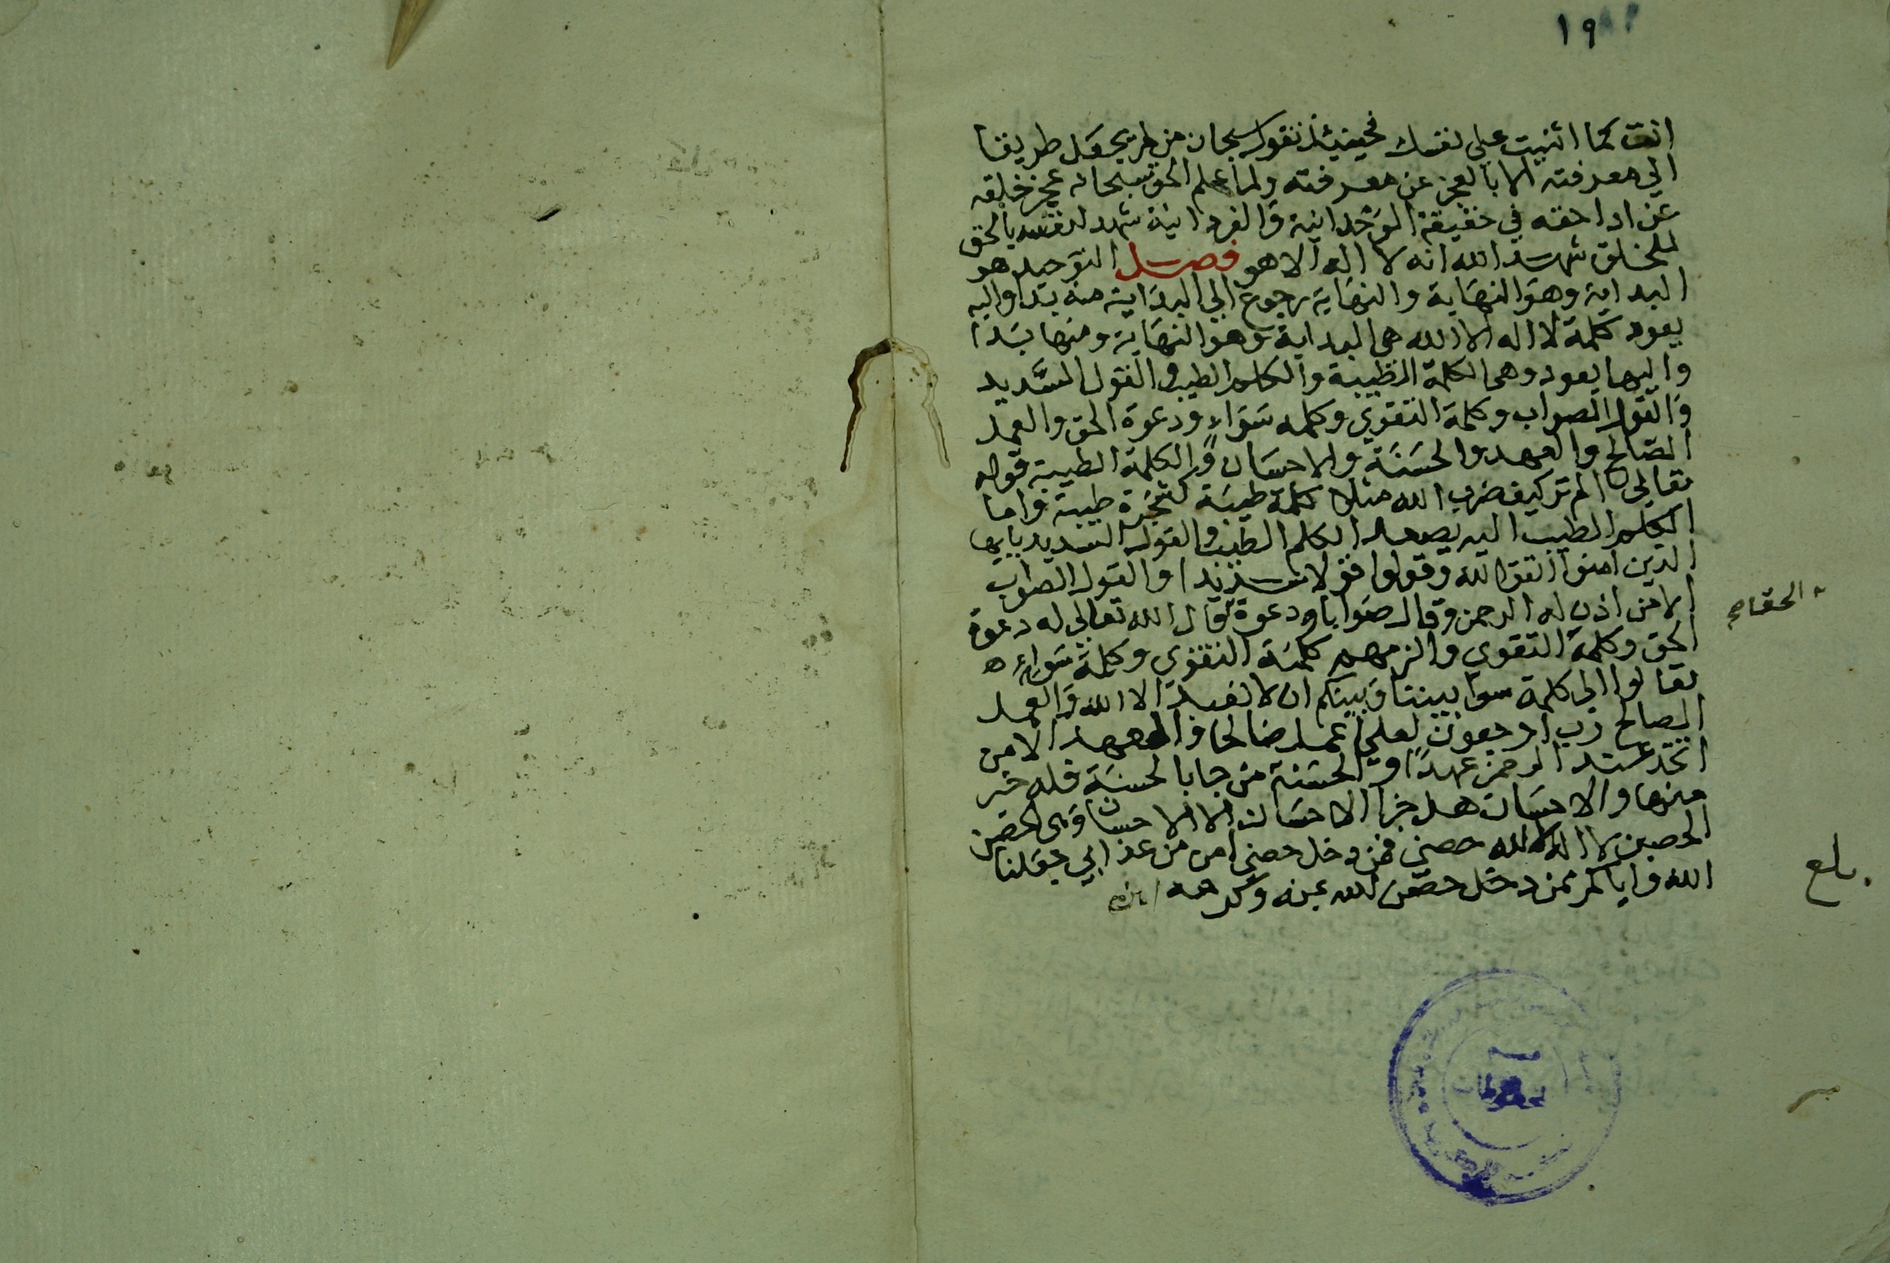 ١٩
انت كما اثنيت على نفسك فحينئذ نقول سبحان من لم يجعل طريقا
الى معرفته الا بالعجز عن معرفته ولما علم الحق سبحانه عجز خلقه
عن ادا حقه في حقيقة الوحدانية والفردانية شهد لنفسه بالحق
للخلق شهد الله انه لا اله الا هو فصل التوحيد هو
البداية وهو النهاية والنهاية رجوع الى البداية منه بدا واليه
يعود كلمة لا اله الا الله هي البداية وهو النهاية ومنها بدا
واليها يعود وهي الكلمة الطيبة والكلم الطيب والقول السديد
والقول الصواب وكلمة التقوى وكلمه سواء ودعوة الحق والعمل
الصالح والعهد والحسنة والاحسان والكلمة الطيبة قوله
تعالى الم تركيف ضرب الله مثلا كلمة طيبة كشجرة طيبة واما
الكلم الطيب اليه يصعد الكلم الطيب والقول السديد يايها
الذين امنوا اتقوا الله وقولوا قولا سديدا والقول الصواب
الا من اذن له الرحمن وقال صوابا ودعوة قال الله تعالى له دعوة
الحق
الحق وكلمة التقوى والزمهم كلمة التقوى وكلمة سواء
تعالوا الى كلمة سوا بيننا وبينكم ان لا نعبد الا الله والعمل
الصالح رب ارجعون لعلي اعمل صالحا والعهد الا من
اتخذ عند الرحمن عهدا والحسنة من جا بالحسنة فله خير
منها والاحسان هل جزا الاحسان الا الاحسان وهى الحصن
الحصين لا اله الا الله حصني فمن دخل حصني امن من عذابي جعلنا
الله واياكم ممن دخل حصن الله بمنه وكرمه امين
بلغ